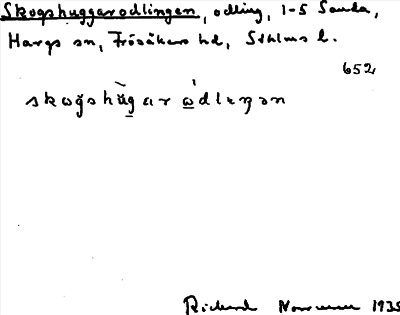 Skogshuggarodlingen, odling, 1-5 Sanda,
Hargs sn, Frösåkers hd, Sthlms l.
652
skogshugar odleŋən
Richard 1935